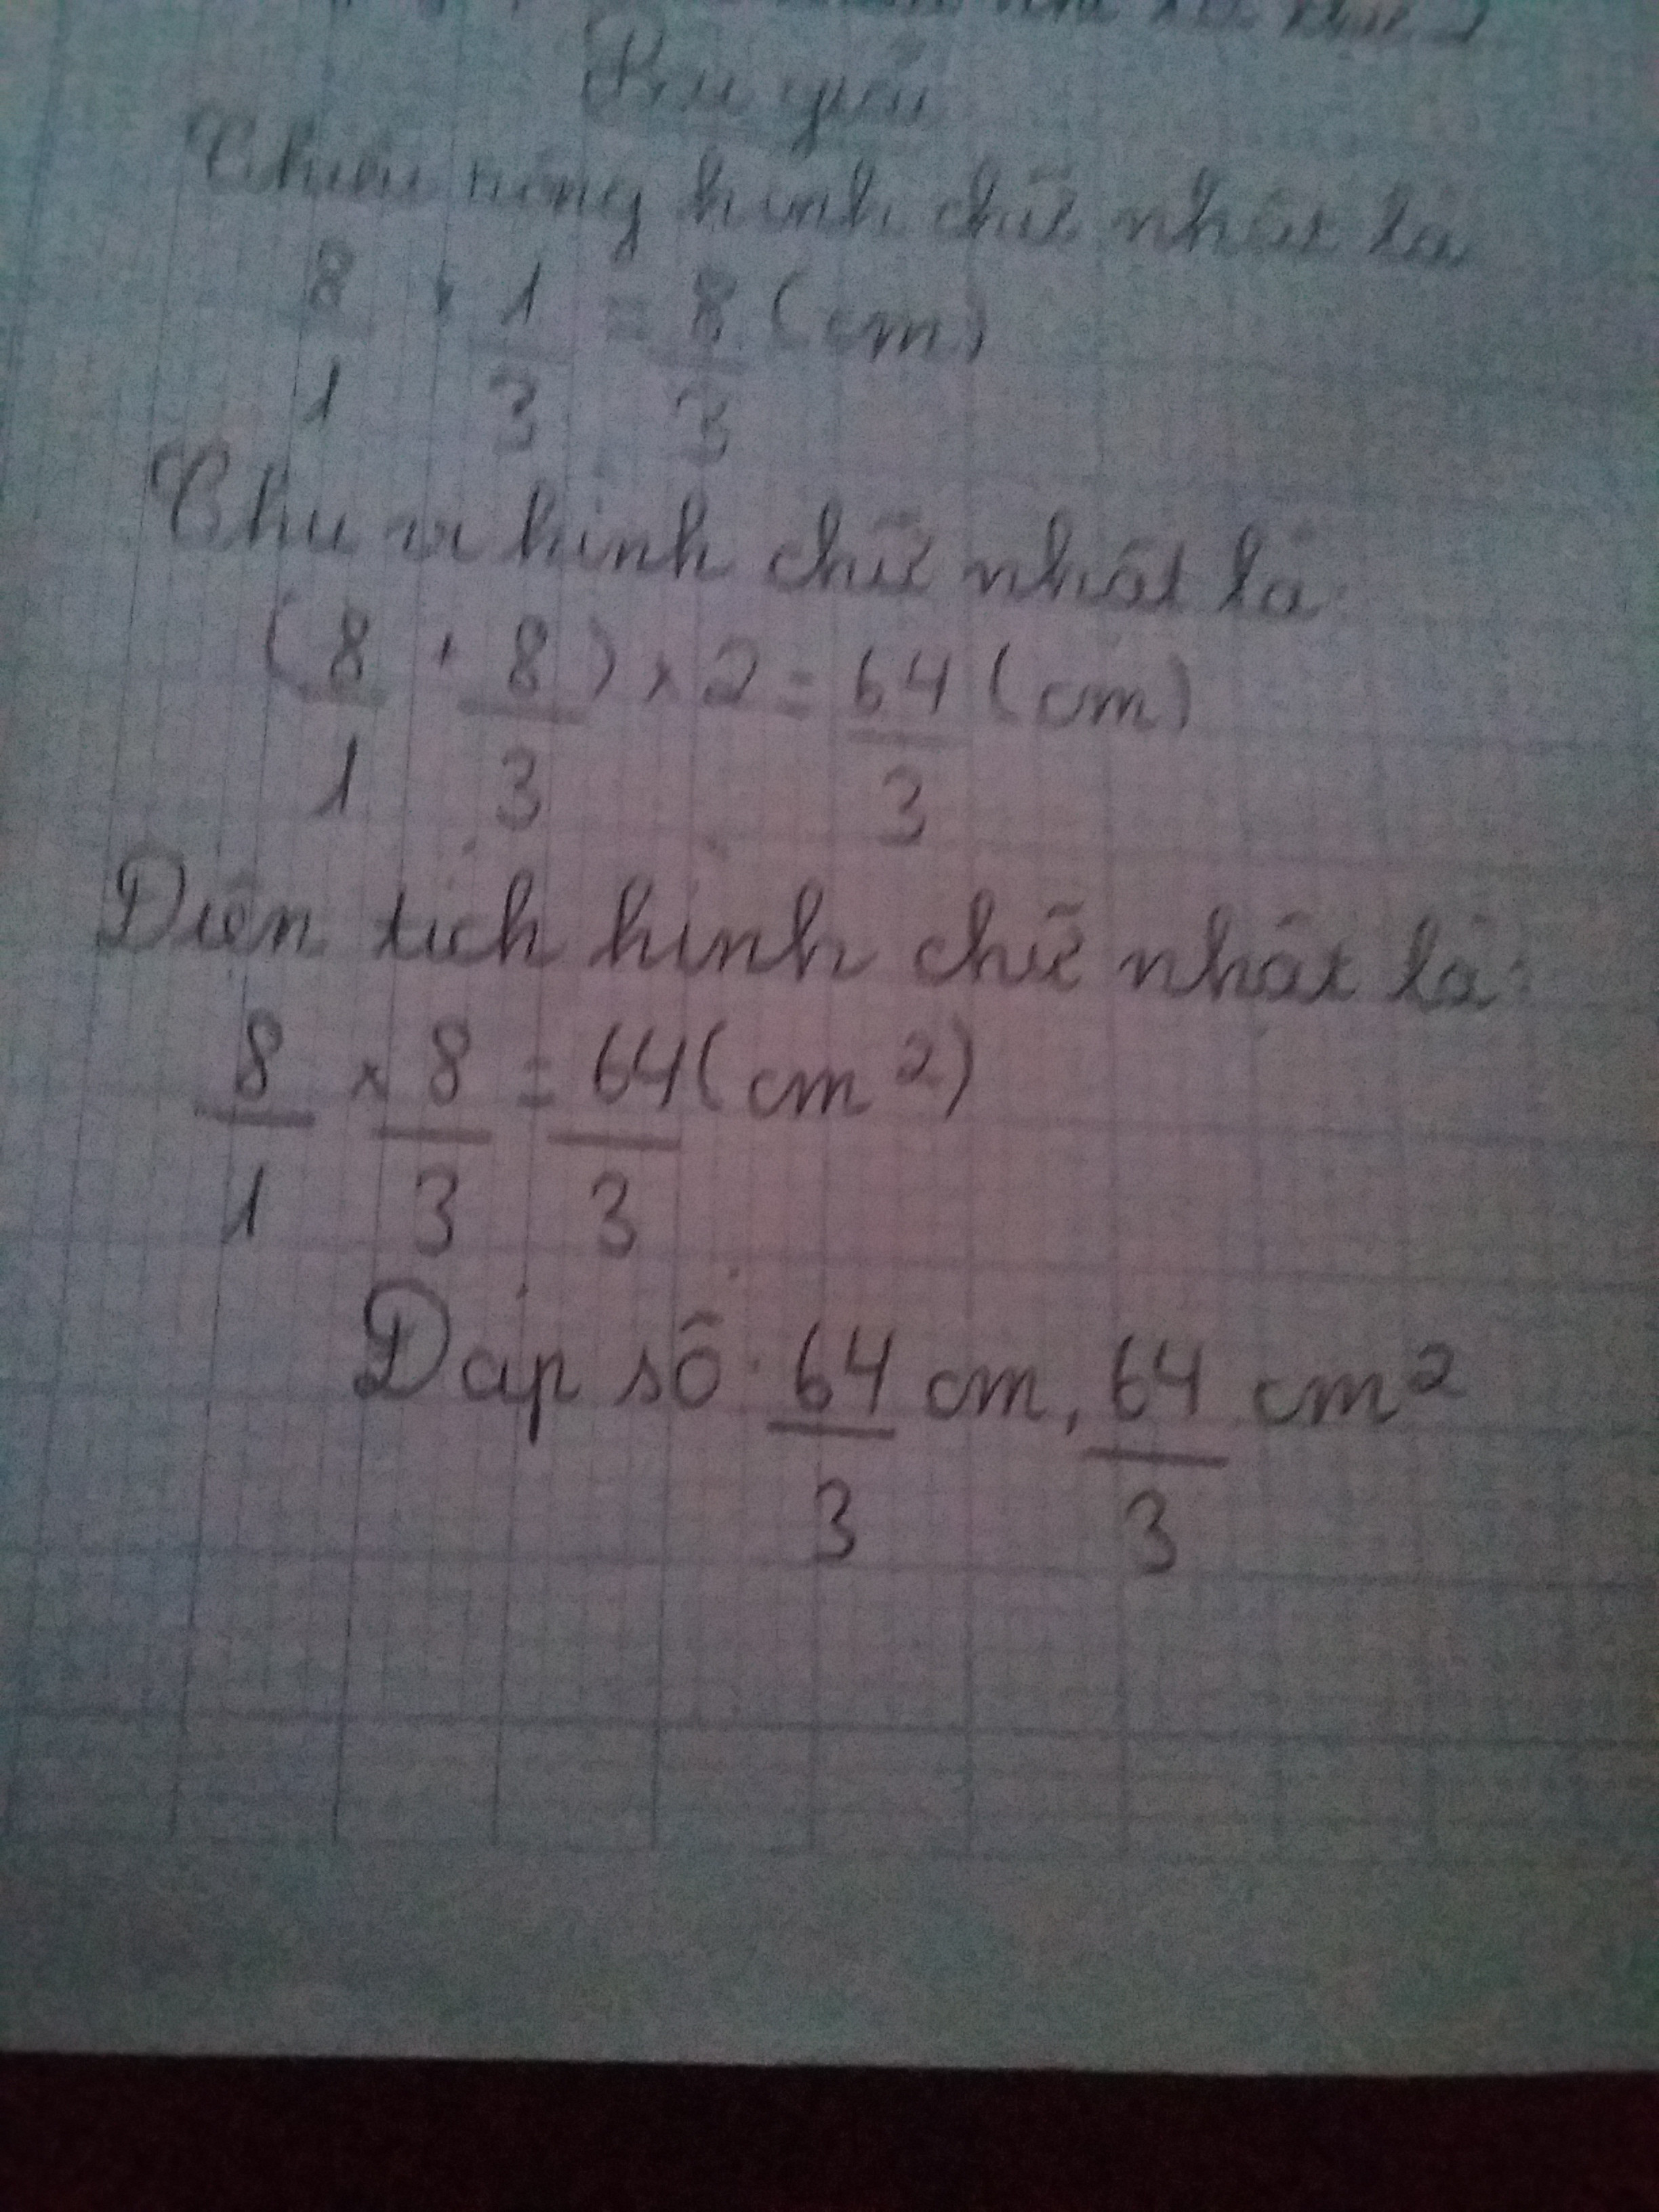 Bài giải
Chiều rộng hình chữ nhật là
8/1 × 1/3 = 8/3 (cm)
Chu vi hình chữ nhật là:
(8/1 + 8/3) × 2 = 64/3 (cm)
Diện tích hình chữ nhật là:
8/1 × 8/3 = 64/3 (cm²)
Đáp số: 64/3 cm, 64/3 cm²